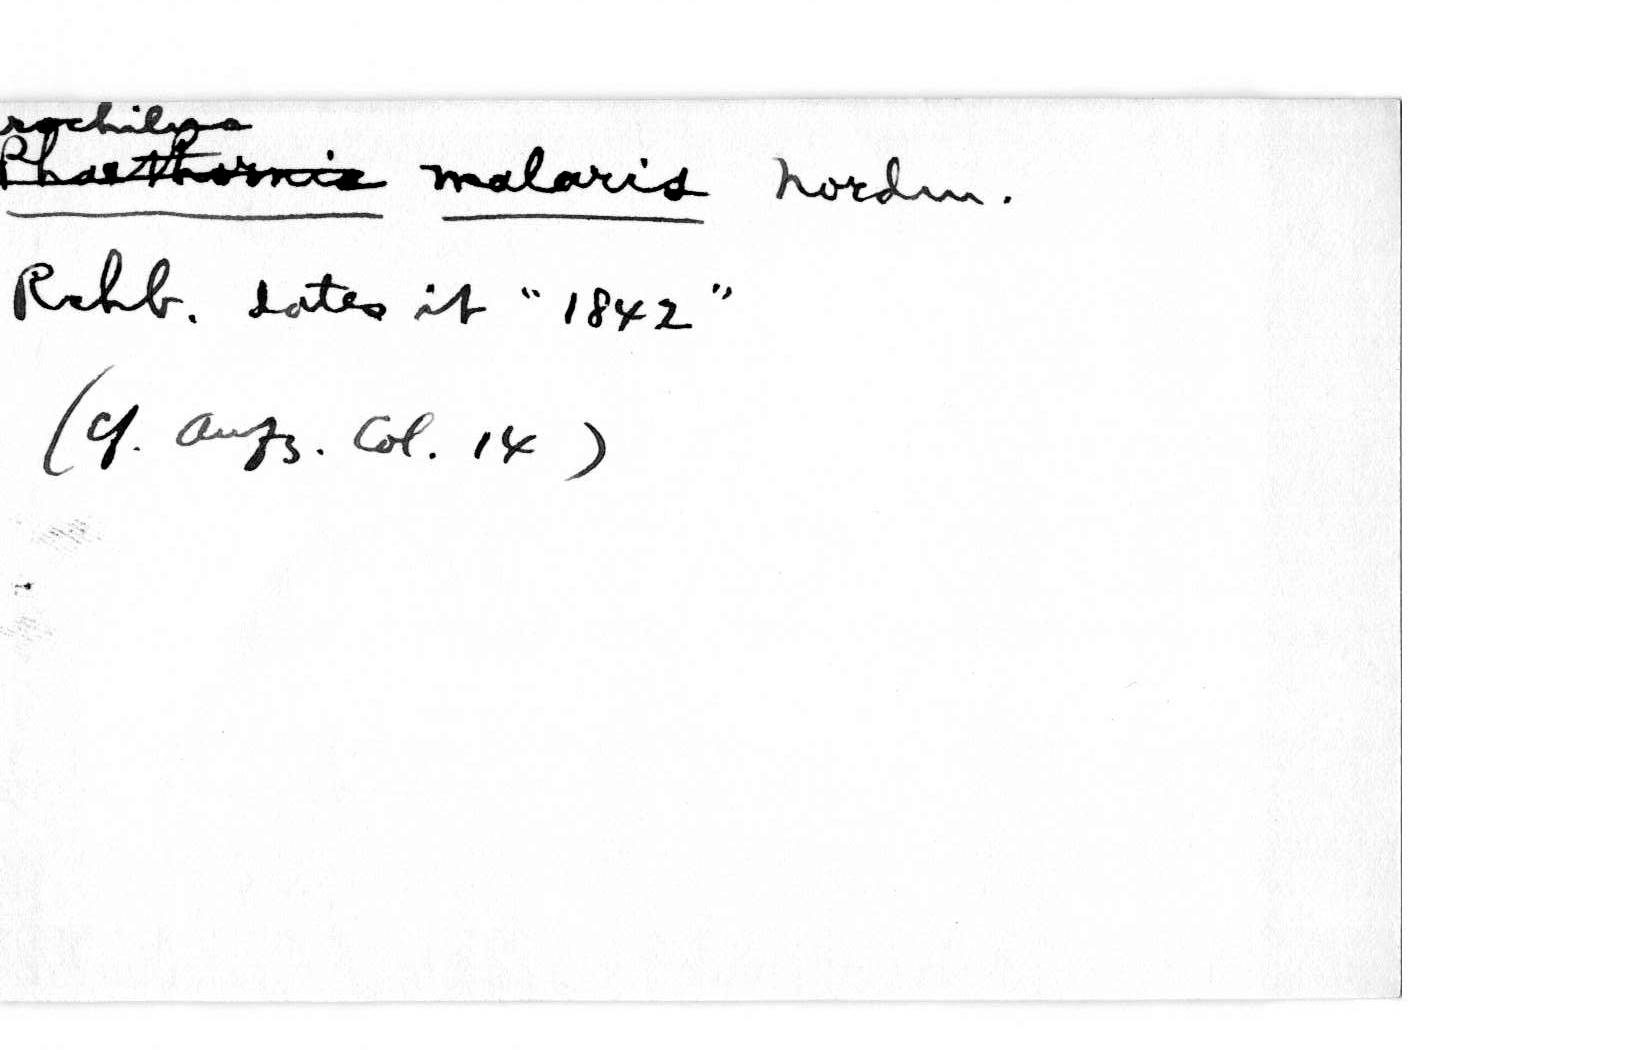 rochilus
Phaethornis malaris Nordm.
Rchb. dates it "1842"
(Cf. Aufz. Col. 14)